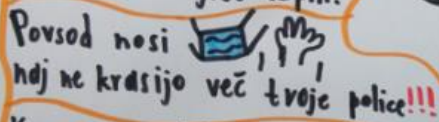 Povsod nosi
naj ne krasijo več tvoje police!!!